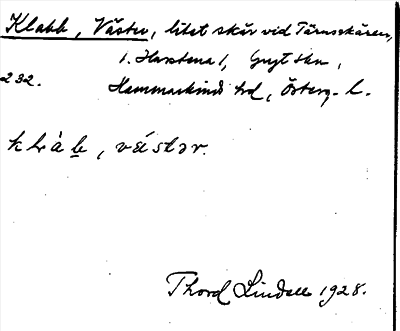 Klabb, Väster, litet skär vid Tärnskären,
1. Harstena 1, Gryt skn,
232. Hammarkinds hd, Österg. l.
klàb, vástər.
Thord Lindell 1928.